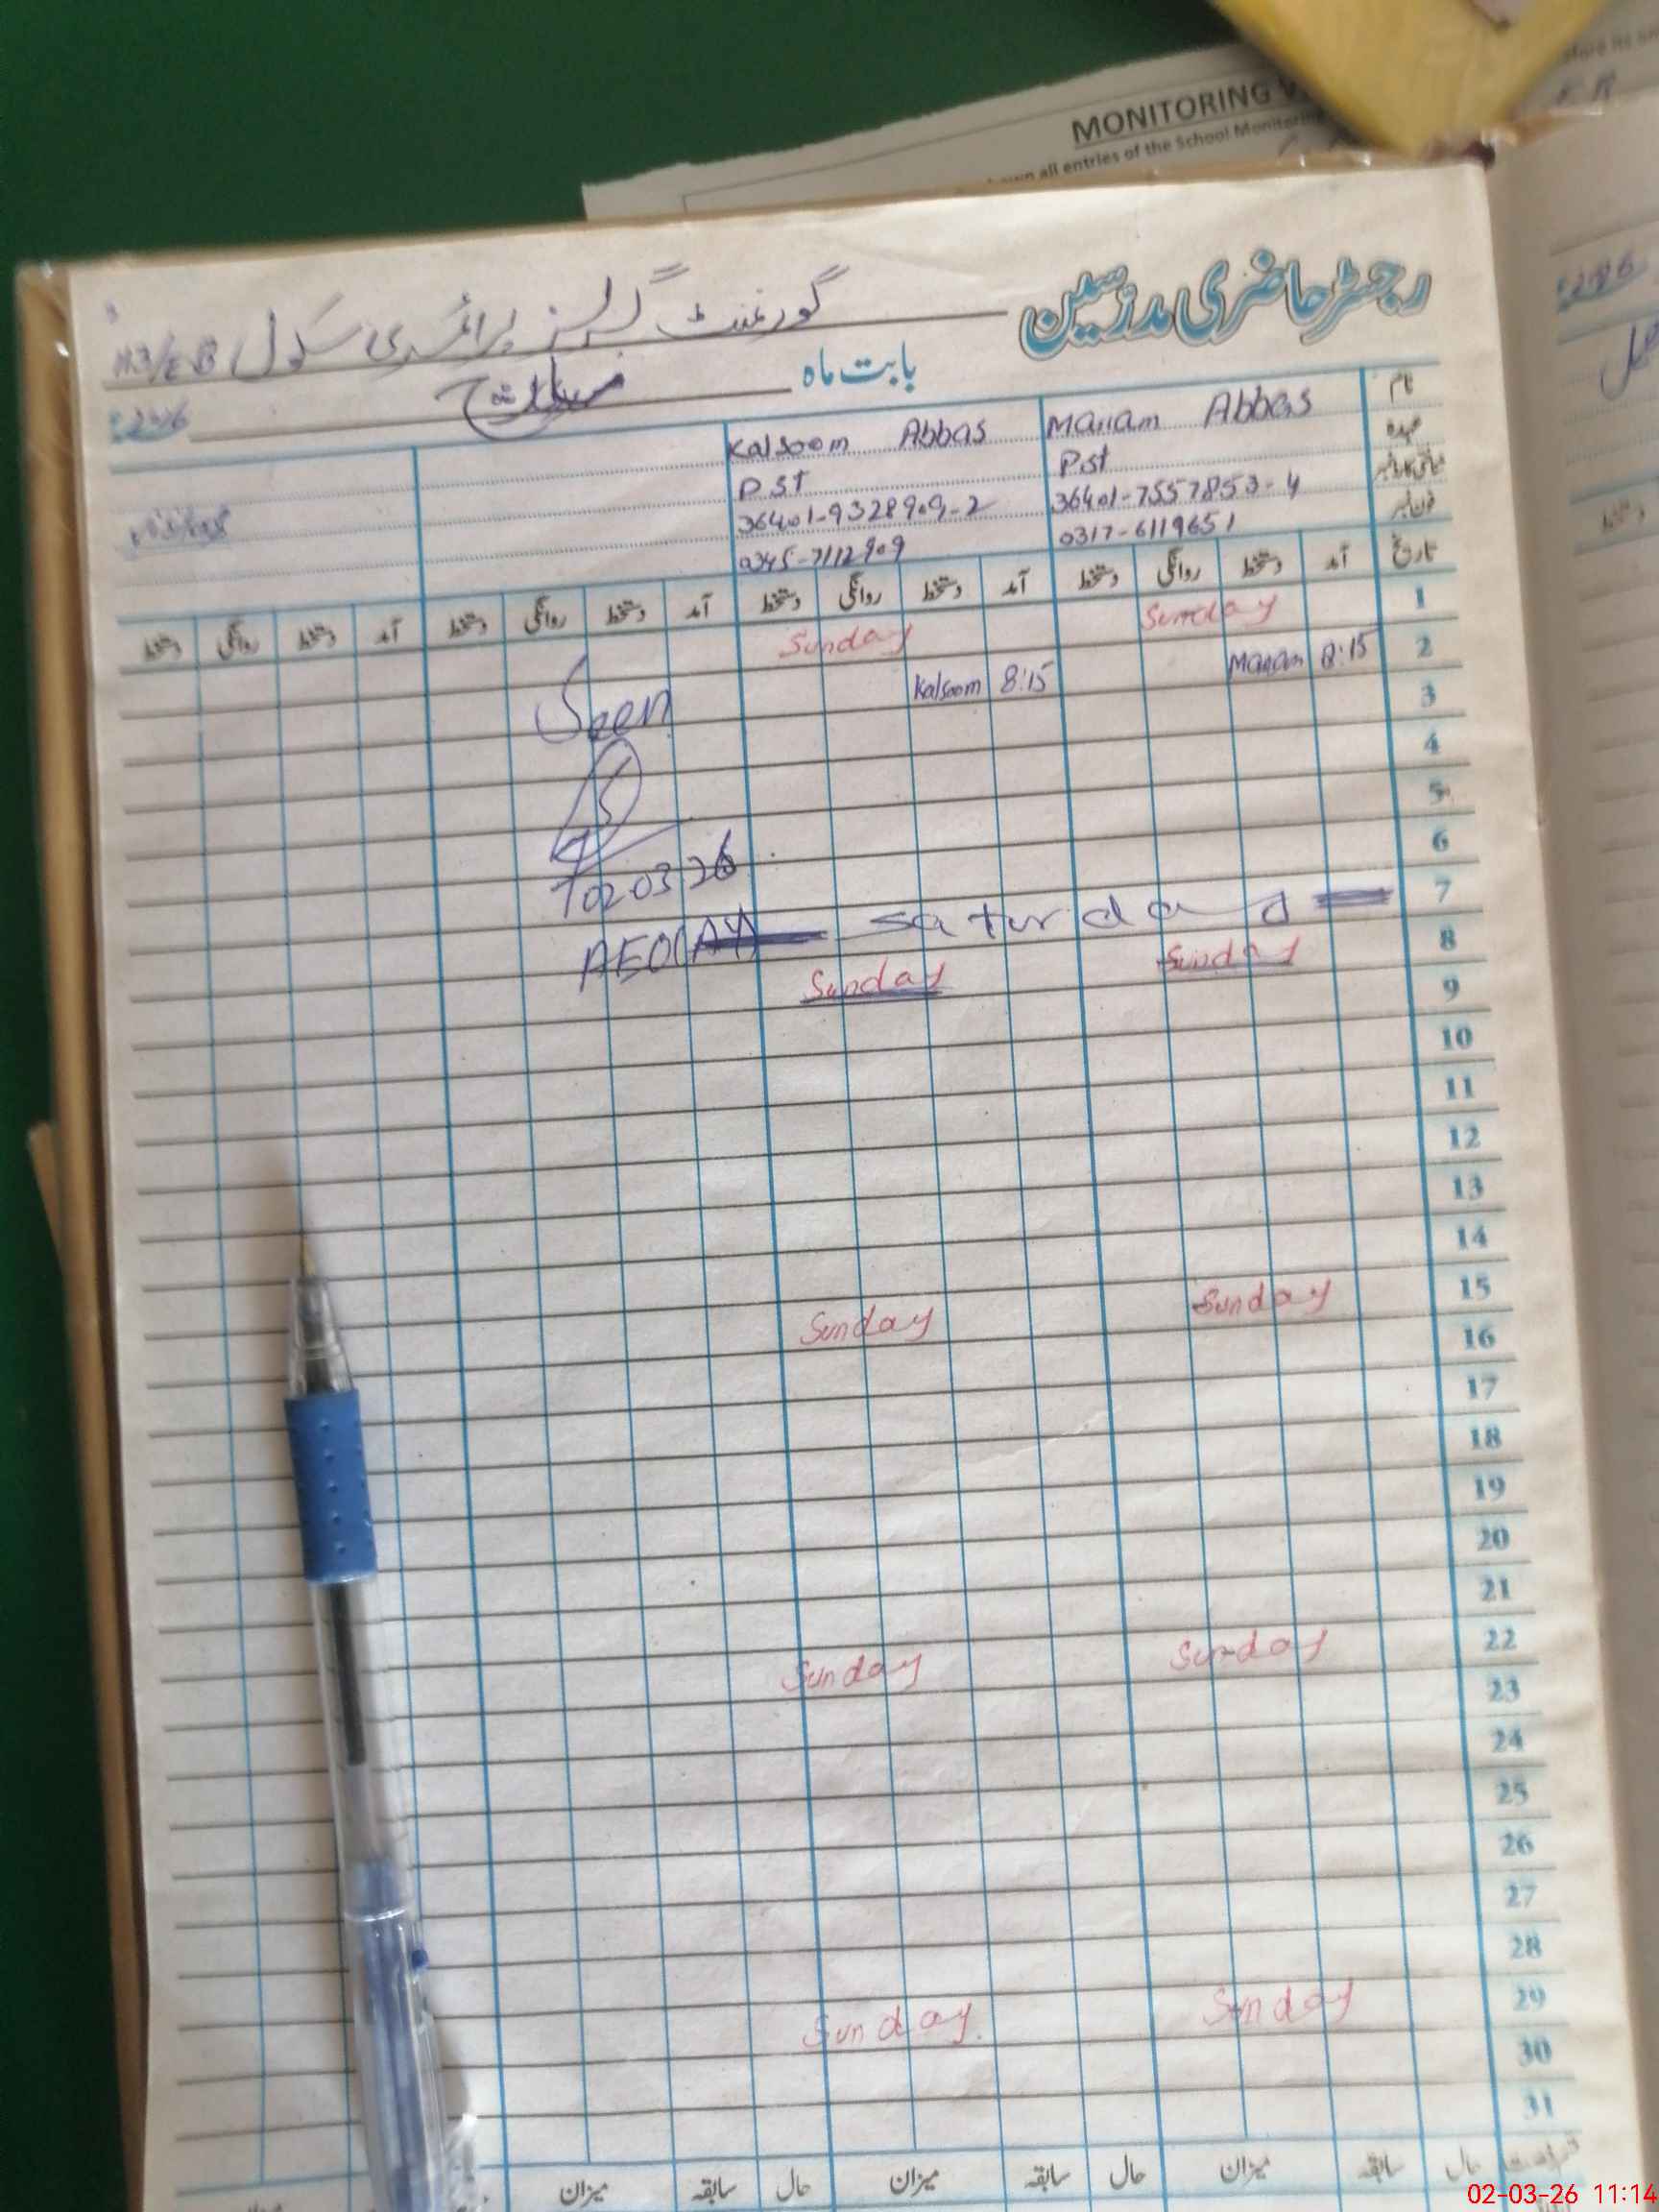 MONITORING
all entries of the School Monitoring
رجسٹر حاضری مدرسین
گورنمنٹ گرلز پرائمری سکول 113/E.B
بابت ماہ مارچ 2026
نام Mariam Abbas Kalsoom Abbas
عہدہ Pst PST
شناختی کارڈ نمبر 36401-7557853-4 36401-9328909-2
فون نمبر 0317-6119651 0345-7112909
تاریخ آمد دستخط روانگی دستخط آمد دستخط روانگی دستخط آمد دستخط روانگی دستخط آمد دستخط روانگی دستخط
1 Sunday Sunday
2 8:15 Mariam 8:15 Kalsoom
3 Seen
4
5
6 02 03 26
7 Saturday AEO(AY)
8 Sunday Sunday
9
10
11
12
13
14
15 Sunday Sunday
16
17
18
19
20
21
22 Sunday Sunday
23
24
25
26
27
28
29 Sunday Sunday
30
31
حال سابقہ میزان حال سابقہ میزان حال سابقہ میزان
02-03-26 11:14